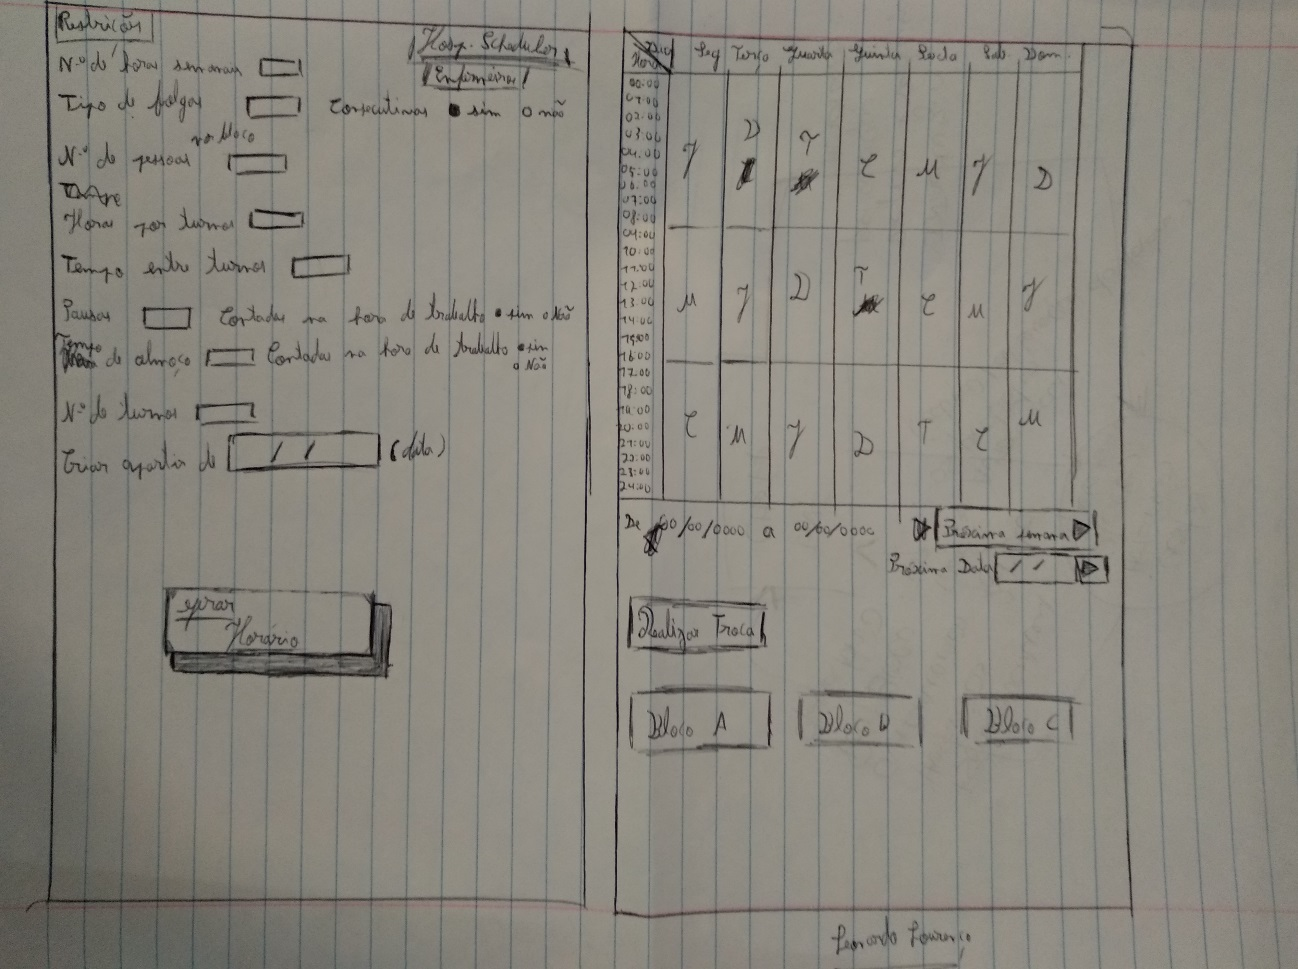 Restrições
Hosp. Scheduler
Enfermeiros
N.º de horas semanais
Tipo de folgas Consecutivas sim não
no bloco
N.º de pessoas
Horas por turnos
Tempo entre turnos
Pausas Contadas na hora de trabalho sim Não
Tempo de almoço Contadas na hora de trabalho sim
Não
N.º de turnos
Criar apartir de / / (data)
gerar
Horário
Dia Seg Terça Quarta Quinta Sexta Sab. Dom.
Hora
00:00
01:00
02:00
03:00
04:00
05:00
06:00
07:00
08:00
09:00
10:00
11:00
12:00
13:00
14:00
15:00
16:00
17:00
18:00
19:00
20:00
21:00
22:00
23:00
24:00
J D T C M J D
M J D T C M J
C M J D T C M
De 00/00/0000 a 00/00/0000 Próxima semana
Próxima Data / /
Realizar Troca
Bloco A Bloco B Bloco C
Leonardo Lourenço